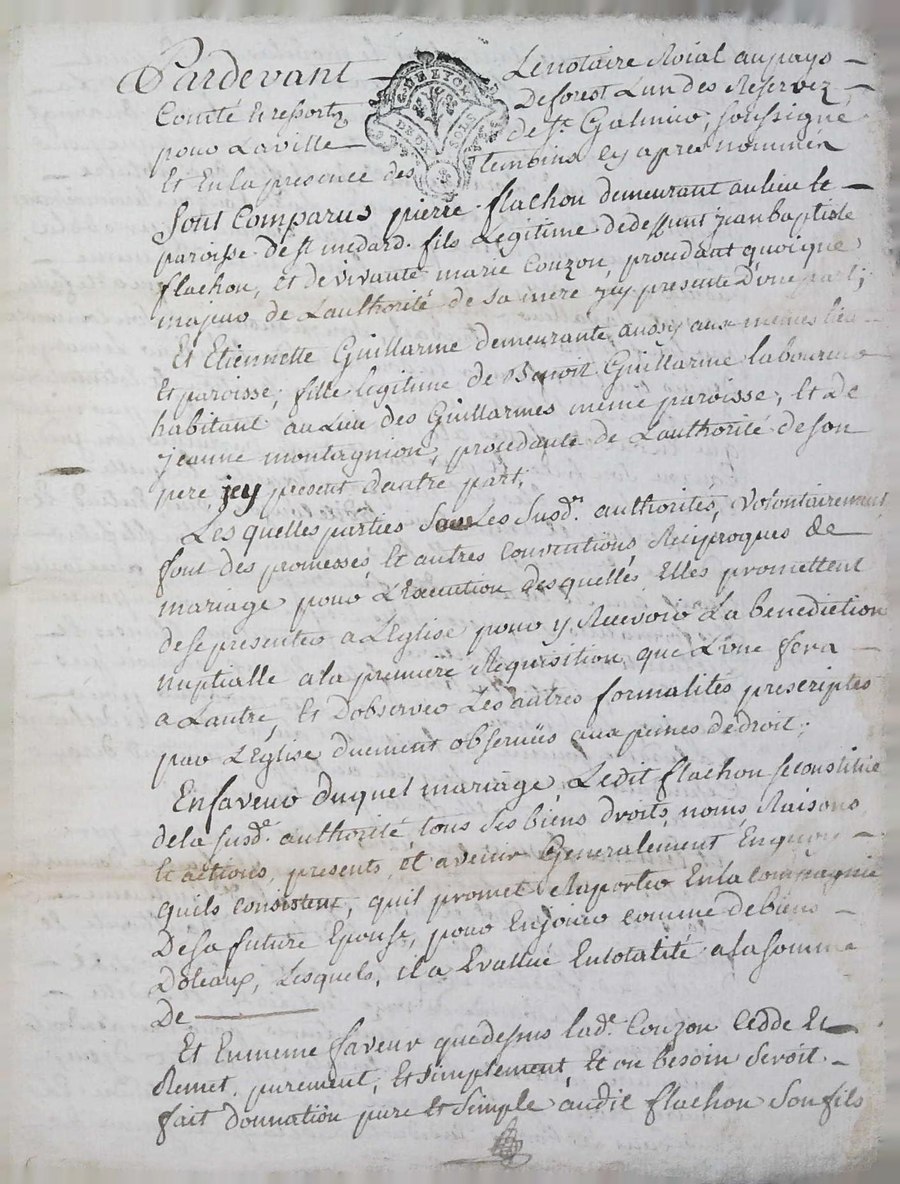 Pardevant Lenotaire Roial au pays
Comté & ressortz De forest L'un des Reservez
pour La ville de St. Galmier, soussigné
Et En la presence des temoins cy apres nommés
Sont Comparus pierre flachon demeurant au lieu &
paroisse de St medard. fils Legitime de deffunt jean baptiste
flachon, Et de vivante marie Couzon, procédant quoique
majeur de L'authorité de sa mere jcy presente D'une part;
Et Etiennette Guillarme demeurante aussy aux memes lieu
Et paroisse, fille legitime de Benoit Guillarme laboureur
habitant au Lieu des Guillarmes même paroisse, Et de
jeanne montagnion, procedante de L'authorité de son
pere jcy present d'autre part.
Les quelles parties sous Les susd. authorités, volontairement
font des promesses, Et autres Conventions Réciproques de
mariage pour L'Execution desquelles Elles promettent
de se presenter a L'Eglise pour y Recevoir La benediction
nuptialle a la premiere Requisition, que L'une fera
a L'autre, Et D'observer Les autres formalités prescriptes
par L'Eglise duement observées aux peines de droit;
En faveur duquel mariage Ledit flachon se constitue
de la susd. authorité, tous ses biens droits, noms, Raisons
& actions, presents, et avenir Generalement En quoy
quils consistent, quil promet Raporter En la compagnie
De sa future Epouse, pour En jouir comme de biens
Dotaux, Lesquels, il a Evallué En totalité a la somme
De
Et En meme faveur que dessus lad. Couzon Cedde Et
Remet, purement, Et simplement, Et ou besoin seroit
fait donnation pure Et simple audit flachon Son fils
GEN LYON
DEUX SOLS